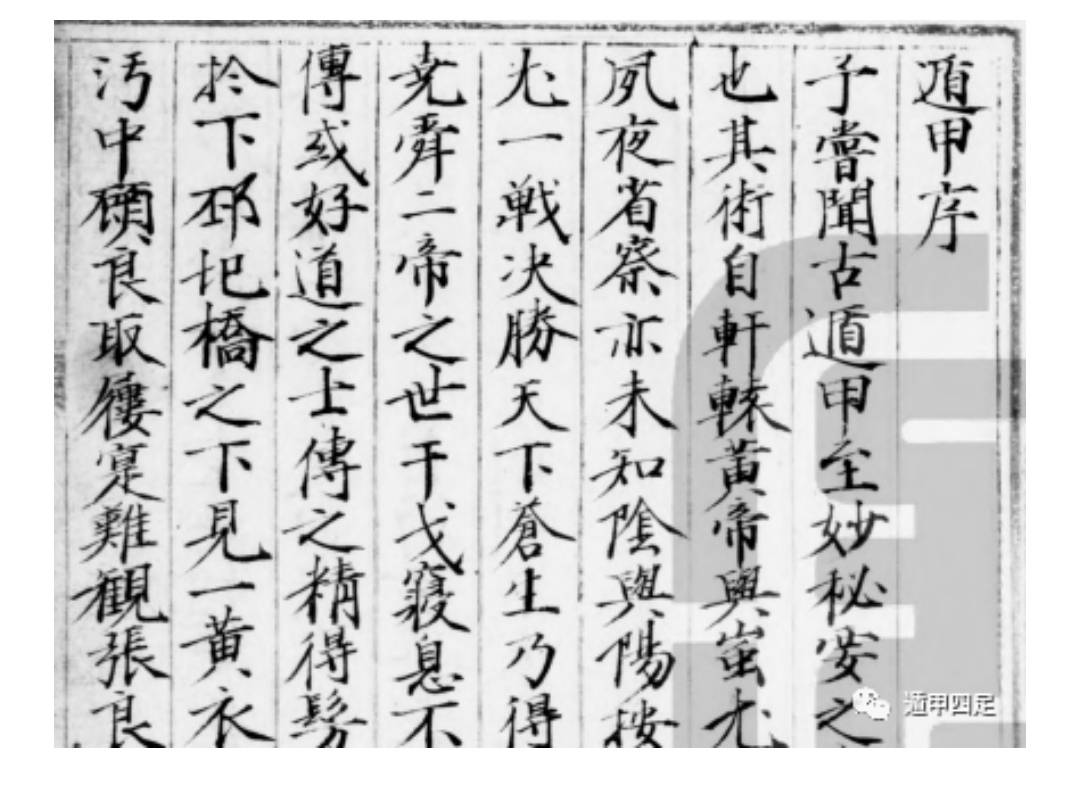 遁甲序
予嘗聞古遁甲至妙秘安之
也其術自軒轅黃帝與蚩尤
夙夜省察亦未知陰與陽按
尤一戦决勝天下蒼生乃得
尭舜二帝之世干戈寢息不
傳或好道之士傳之精得髣
扵下邳圯橋之下見一黃衣
汚中碩良取履寔難観張良
遁甲四足